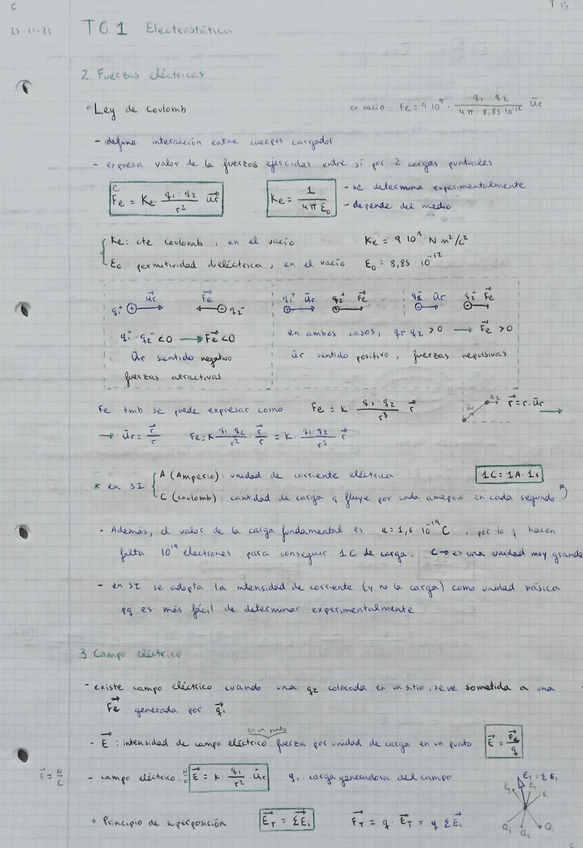 T 13
25-11-21
T6 1 Electrostática
2 Fuerzas eléctricas
• Ley de Coulomb
en vacío = Fe = 9 10⁹ · q₁ · q₂ / 4π · 8,85·10⁻¹² ūr
- define interacción entre cuerpos cargados
- expresa valor de las fuerzas ejercidas entre sí por 2 cargas puntuales
Fe = Ke · q₁ · q₂ / r² ūr
Ke = 1 / 4π ε₀
- se determina experimentalmente
- depende del medio
Ke: cte coulomb, en el vacío Ke = 9 10⁹ N m²/c²
ε₀ permitividad dieléctrica, en el vacío ε₀ = 8,85 10⁻¹²
q₁⁺ ūr Fe q₂⁻
q₁⁺ ūr q₂⁺ Fe
q₁⁻ ūr q₂⁻ Fe
q₁⁺ · q₂⁻ < 0 → Fe < 0
en ambos casos, q₁ q₂ > 0 → Fe > 0
ūr sentido negativo
ūr sentido positivo, fuerzas repulsivas
fuerzas atractivas
Fe tmb se puede expresar como Fe = k q₁ · q₂ / r³ r
r = r · ūr
→ ūr = r / r Fe = k q₁ q₂ / r² · r / r = k · q₁ q₂ / r³ r
* en SI
A (Amperio): unidad de corriente eléctrica
1C = 1A · 1s
C (coulomb): cantidad de carga q fluye por cada amperio en cada segundo
- Además, el valor de la carga fundamental es e = 1,6 · 10⁻¹⁹ C, por lo q hacen
falta 10¹⁹ electrones para conseguir 1C de carga. C → es una unidad muy grande
- en SI se adopta la intensidad de corriente (y no la carga) como unidad básica
pq es más fácil de determinar experimentalmente
3 Campo eléctrico
- existe campo eléctrico cuando una q₂ colocada en un sitio, se ve sometida a una
Fe generada por q₁
en un punto
- E : intensidad de campo eléctrico fuerza por unidad de carga en un punto E = Fe / q
E = N/C
- campo eléctrico: N/C E = k · q₁ / r² ūr q₁ carga generadora del campo
E_T = Σ Ei
• Principio de superposición E_T = ΣEi F_T = q · E_T = q ΣEi
Q₁ Q₂ Q₃